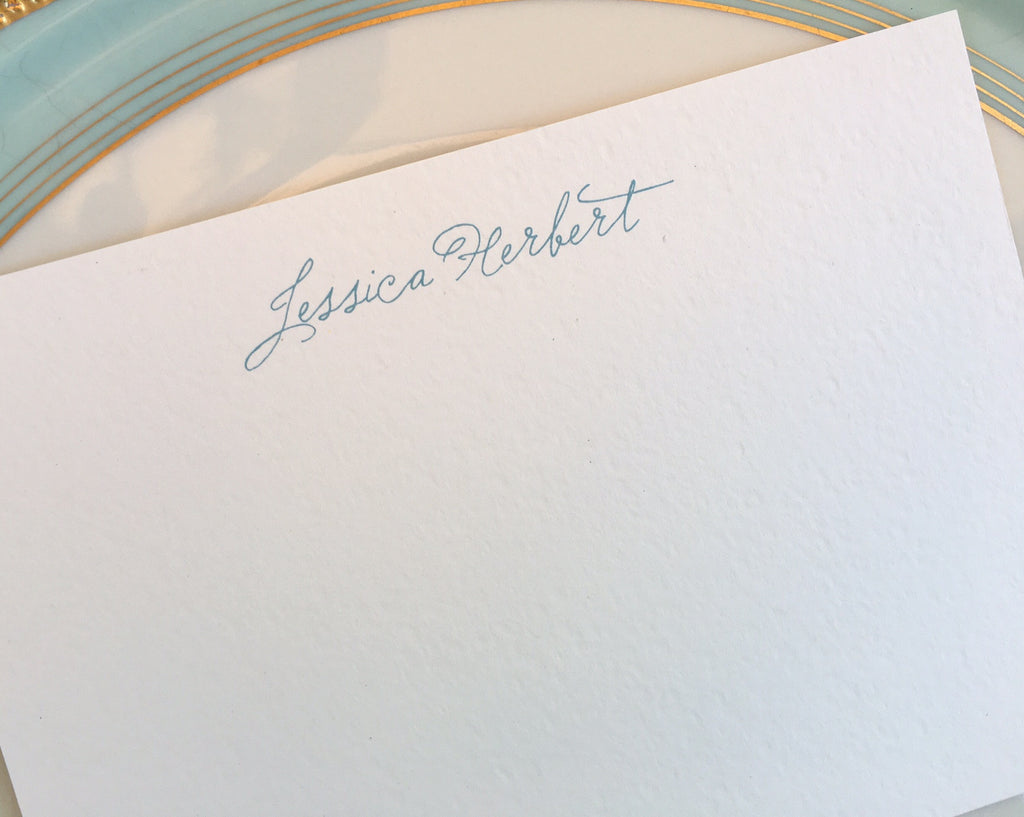 Jessica Herbert